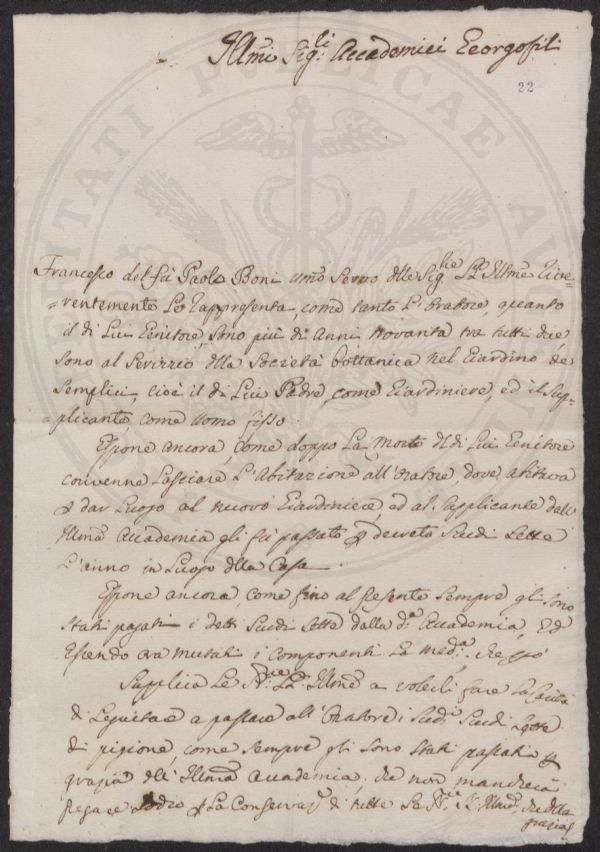 Illmi Sig:li Accademici Georgofili
22
Francesco del fù Paolo Boni umo Servo delle Sig:rie LL Illme rive=
=rentemente Le rappresenta, come tanto L'Oratore, quanto
il di Lui Genitore, sono più di Anni Novanta tre tutti due
sono al Servizzio della Società Bottanica nel Giardino de
Semplici, cioè il di Lui Padre, come Giardiniere, ed il Sup=
=plicante come uomo fisso.
Espone ancora, come doppo La Morte del di Lui Genitore
convenne Lasciare L'Abitazione all'Oratore, dove abitava
p dar Luogo al nuovo Giardiniere, ed al Supplicante dall'
Illma Accademia gli fù passato p decreto Scudi Sette
L'anno in Luogo della Casa
Espone ancora, come fino al presente sempre gli sono
stati pagati i detti Scudi Sette dalla d.a Accademia, Ed
Essendo ora mutati i componenti La med.a
Supplica Le LL Illme a volerli fare La Carità
di seguitare a passare all'Oratore i Scudi Sette
di pigione, come sempre gli sono stati passati p
grazia dell'Illma Accademia che non mancherà
pregare Iddio p La Conservaz.e di tutte Le LL Illme che della
grazia